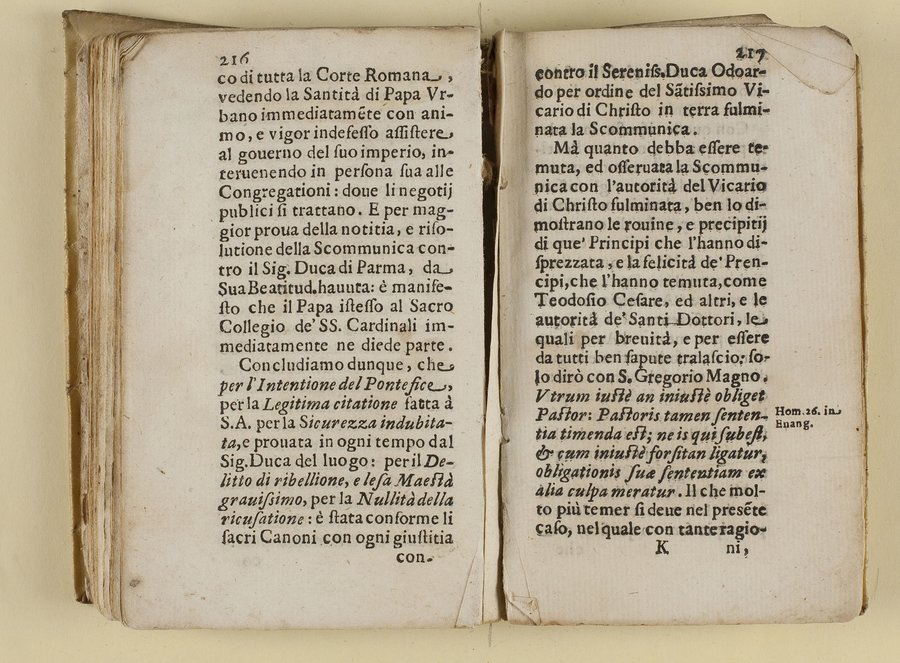 216
co di tutta la Corte Romana,
vedendo la Santità di Papa Vr-
bano immediatamẽte con ani-
mo, e vigor indefeſſo aſſiſtere
al gouerno del ſuo imperio, in-
teruenendo in perſona ſua alle
Congregationi: doue li negotij
publici ſi trattano. E per mag-
gior proua della notitia, e riſo-
lutione della Scommunica con-
tro il Sig. Duca di Parma, da
Sua Beatitud. hauuta: è manife-
ſto che il Papa iſteſſo al Sacro
Collegio de' SS. Cardinali im-
mediatamente ne diede parte.
Concludiamo dunque, che
per l'Intentione del Pontefice,
per la Legitima citatione fatta à
S.A. per la Sicurezza indubita-
ta, e prouata in ogni tempo dal
Sig. Duca del luogo: per il De-
litto di ribellione, e leſa Maeſtà
grauiſſimo, per la Nullità della
ricuſatione: è ſtata conforme li
ſacri Canoni con ogni giuſtitia
con-
217
contro il Sereniſs. Duca Odoar-
do per ordine del Sãtiſsimo Vi-
cario di Chriſto in terra fulmi-
nata la Scommunica.
Mà quanto debba eſſere te-
muta, ed oſſeruata la Scommu-
nica con l'autorità del Vicario
di Chriſto fulminata, ben lo di-
moſtrano le rouine, e precipitij
di que' Principi che l'hanno di-
ſprezzata, e la felicità de' Pren-
cipi, che l'hanno temuta, come
Teodoſio Ceſare, ed altri, e le
autorità de' Santi Dottori, le
quali per breuità, e per eſſere
da tutti ben ſapute tralaſcio: ſo-
lo dirò con S. Gregorio Magno.
Vtrum iuſtè an iniuſtè obliget
Paſtor: Paſtoris tamen ſenten-
tia timenda eſt; ne is qui ſubeſt,
& cum iniuſtè forſitan ligatur,
obligationis ſuæ ſententiam ex
alia culpa meratur. Il che mol-
to più temer ſi deue nel preſẽte
caſo, nel quale con tante ragio-
K ni,
Hom. 26. in
Euang.